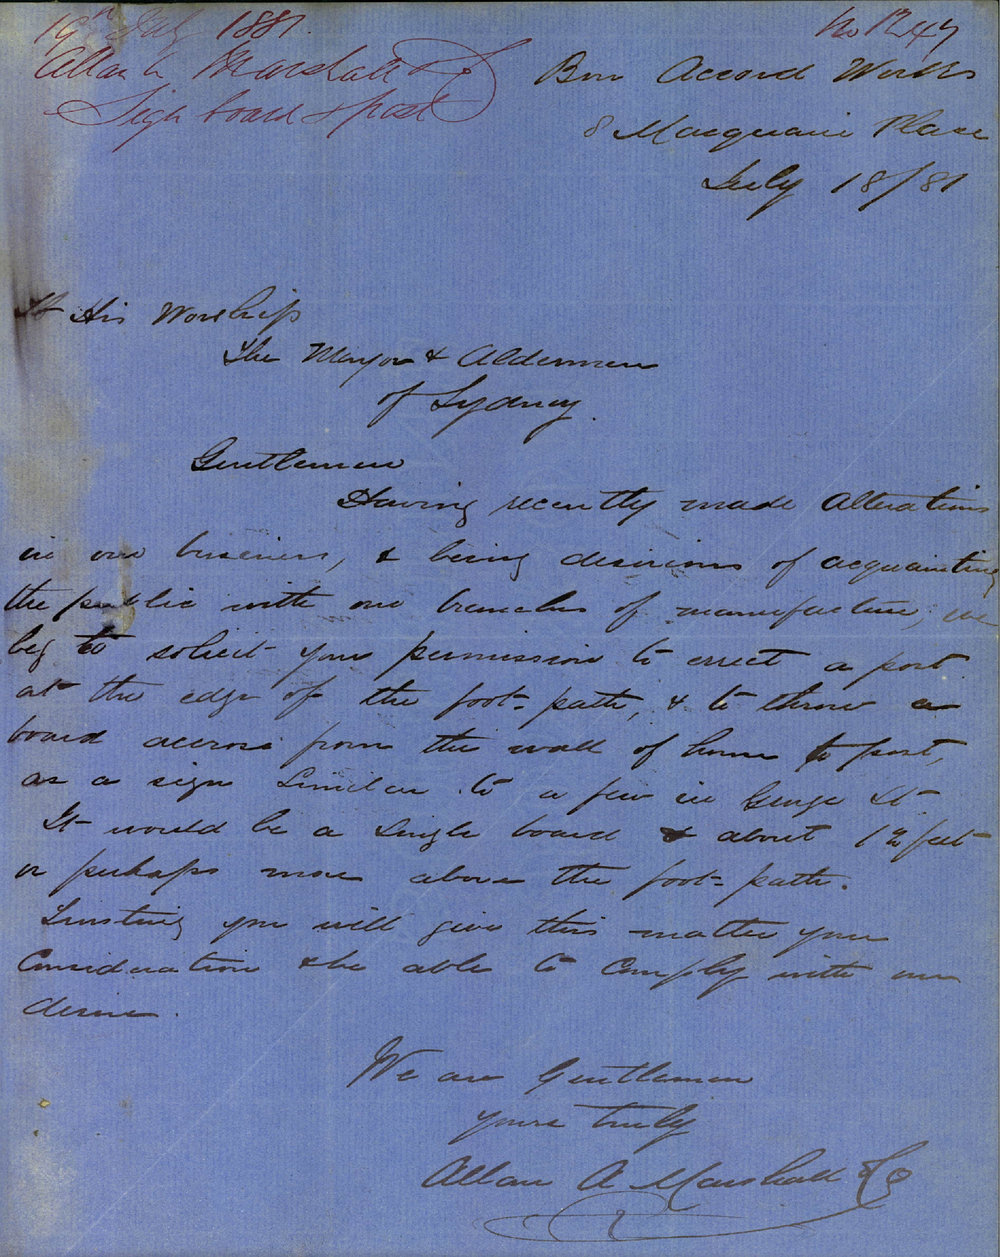 19th July 1881
No 1247
Allan A Marshall & Co
Sign board & post
Bon Accord Works
8 Macquarie Place
July 18/81
To His Worship
The Mayor & Aldermen
of Sydney.
Gentlemen
Having recently made Alterations
in our business, & being desirious of acquainting
the public with our branches of manufacture, we
beg to solicit your permission to erect a post
at the edge of the foot-path, & to throw a
board accross from the wall of house to post,
as a sign Similar to a few in George St
It would be a Single board & about 12 feet
or perhaps more above the foot-path.
Trusting you will give this matter your
Consideration & be able to Comply with our
desire.
We are Gentlemen
yours truly
Allan A Marshall & Co